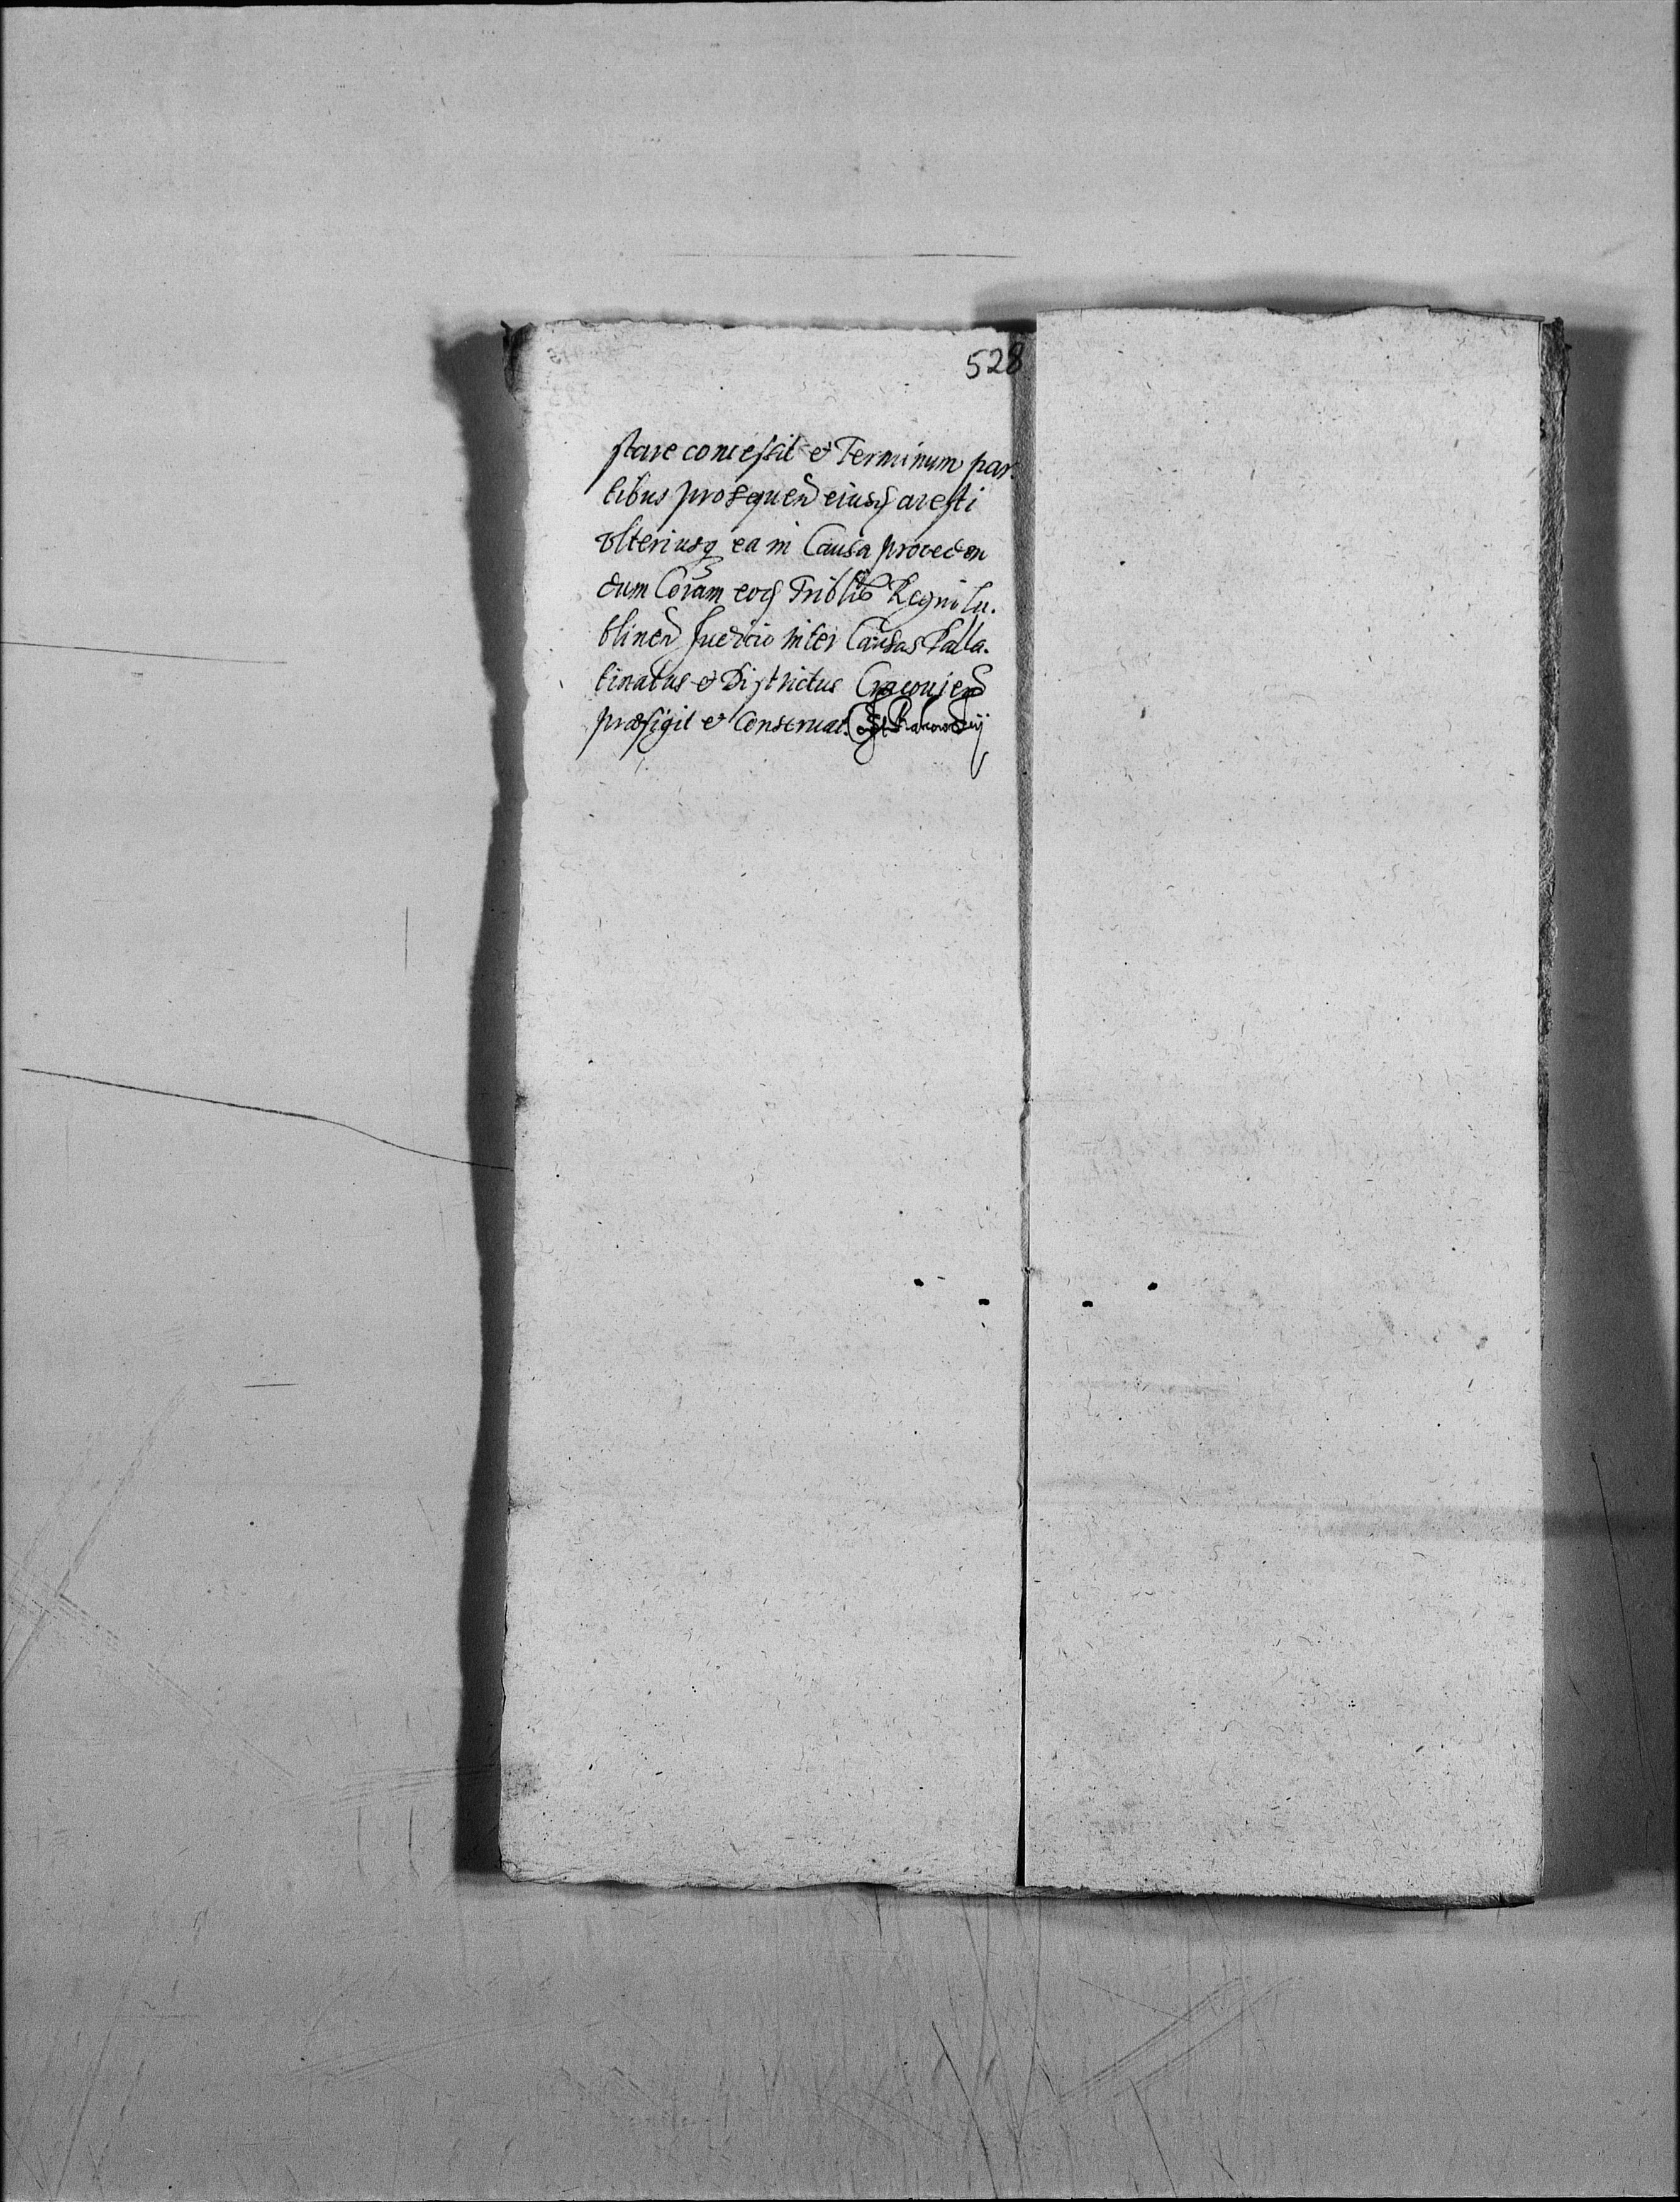 528
stare concessit et Terminum par.
tibus prosequen eiusd aresti
vlteriusq ea in Causa proceden
dum Coram eod Triblis Regni Lu.
blinen Iudicio inter Causas Palla.
tinatus et Districtus Cracouien
præfigit et Conseruat.